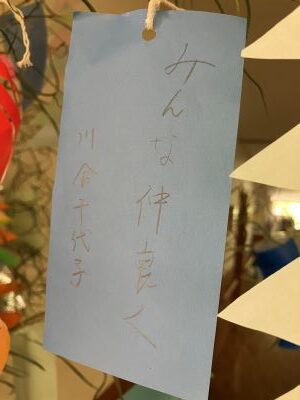 みんな仲良く
川合千代子